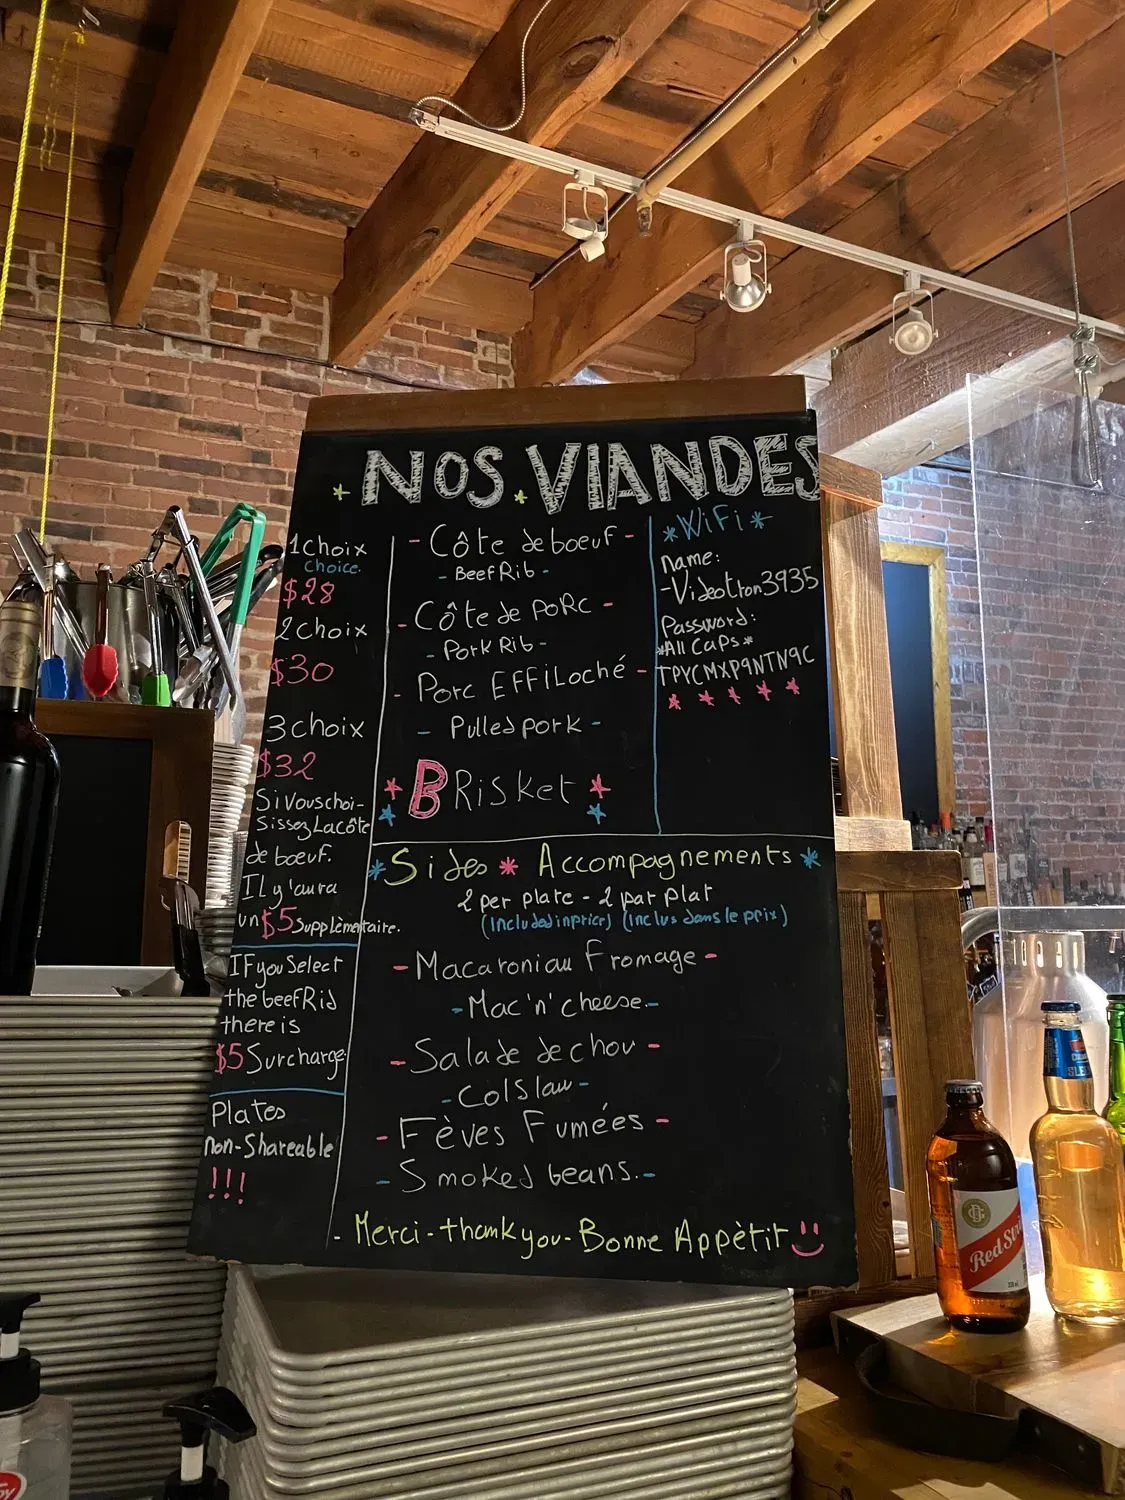 NOS VIANDES
1 choix
choice.
$28
2 choix
$30
3 choix
$32
Si vous choi-
sissez La côte
de boeuf.
IL y'aura
un $5 supplèmentaire.
IF you Select
the beef Rib
there is
$5 Surcharge
Plates
non-Shareable
!!!
- Côte de boeuf -
- Beef Rib -
- Côte de poRc -
- Pork Rib -
- Porc EFFiLoché -
- Pulled pork -
BRisket
*WiFi*
name:
-Videotron3935
Password:
*All caps*
TPYCMXP9NTN9C
*Sides * Accompagnements *
2 per plate - 2 par plat
(included in price) (inclus dans le prix)
- Macaroni au Fromage -
- Mac 'n' cheese.-
- Salade de chou -
- Col Slaw -
- Fèves Fumées -
- Smoked beans.-
- Merci - thank you - Bonne Appètit
Red Str